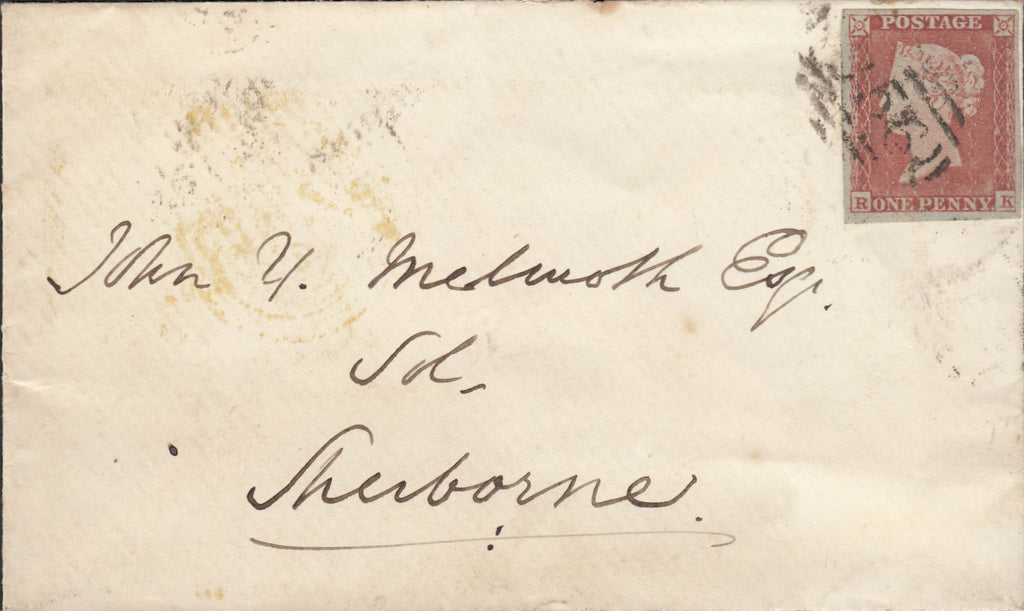 POSTAGE
R ONE PENNY K
John Y. Melmoth Esq.
Sol,
Sherborne.